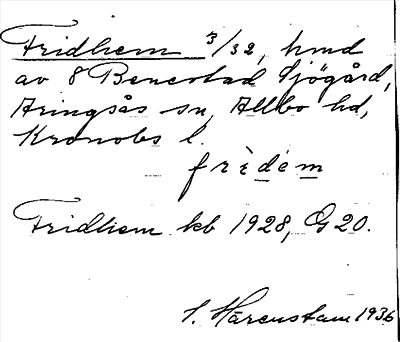 Fridhem 3/32, hmd
av 8 Benestad Sjögård,
Aringsås sn, Allbo hd,
Kronobs l.
frèdèm
Fridhem kb 1928, G 20.
S. Härenstam 1936